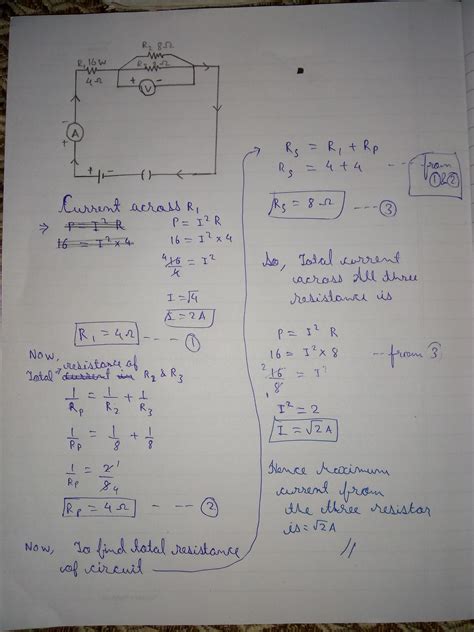 R₂ 8Ω
R₁ 16W
R₃ 8Ω
4Ω
+ V -
-
A
+
+ -
Current across R₁
⇒ P = I² R
16 = I² x 4
P = I² R
16 = I² x 4
4 16 / 4 = I²
I = √4
I = 2A
R₁ = 4Ω --- ①
Now,
Total current in resistance of R₂ & R₃
1/Rp = 1/R₂ + 1/R₃
1/Rp = 1/8 + 1/8
1/Rp = 2 1/8 4
Rp = 4Ω --- ②
Now, To find total resistance
of circuit
R₃ = R₁ + Rp
R₃ = 4 + 4 --- from ① & ②
R₃ = 8Ω --- ③
So, Total current
across All three
resistance is
P = I² R
16 = I² x 8 --- from 3
2 16 / 8 = I²
I² = 2
I = √2 A
Hence Maximum
current from
the three resistor
is = √2A
//